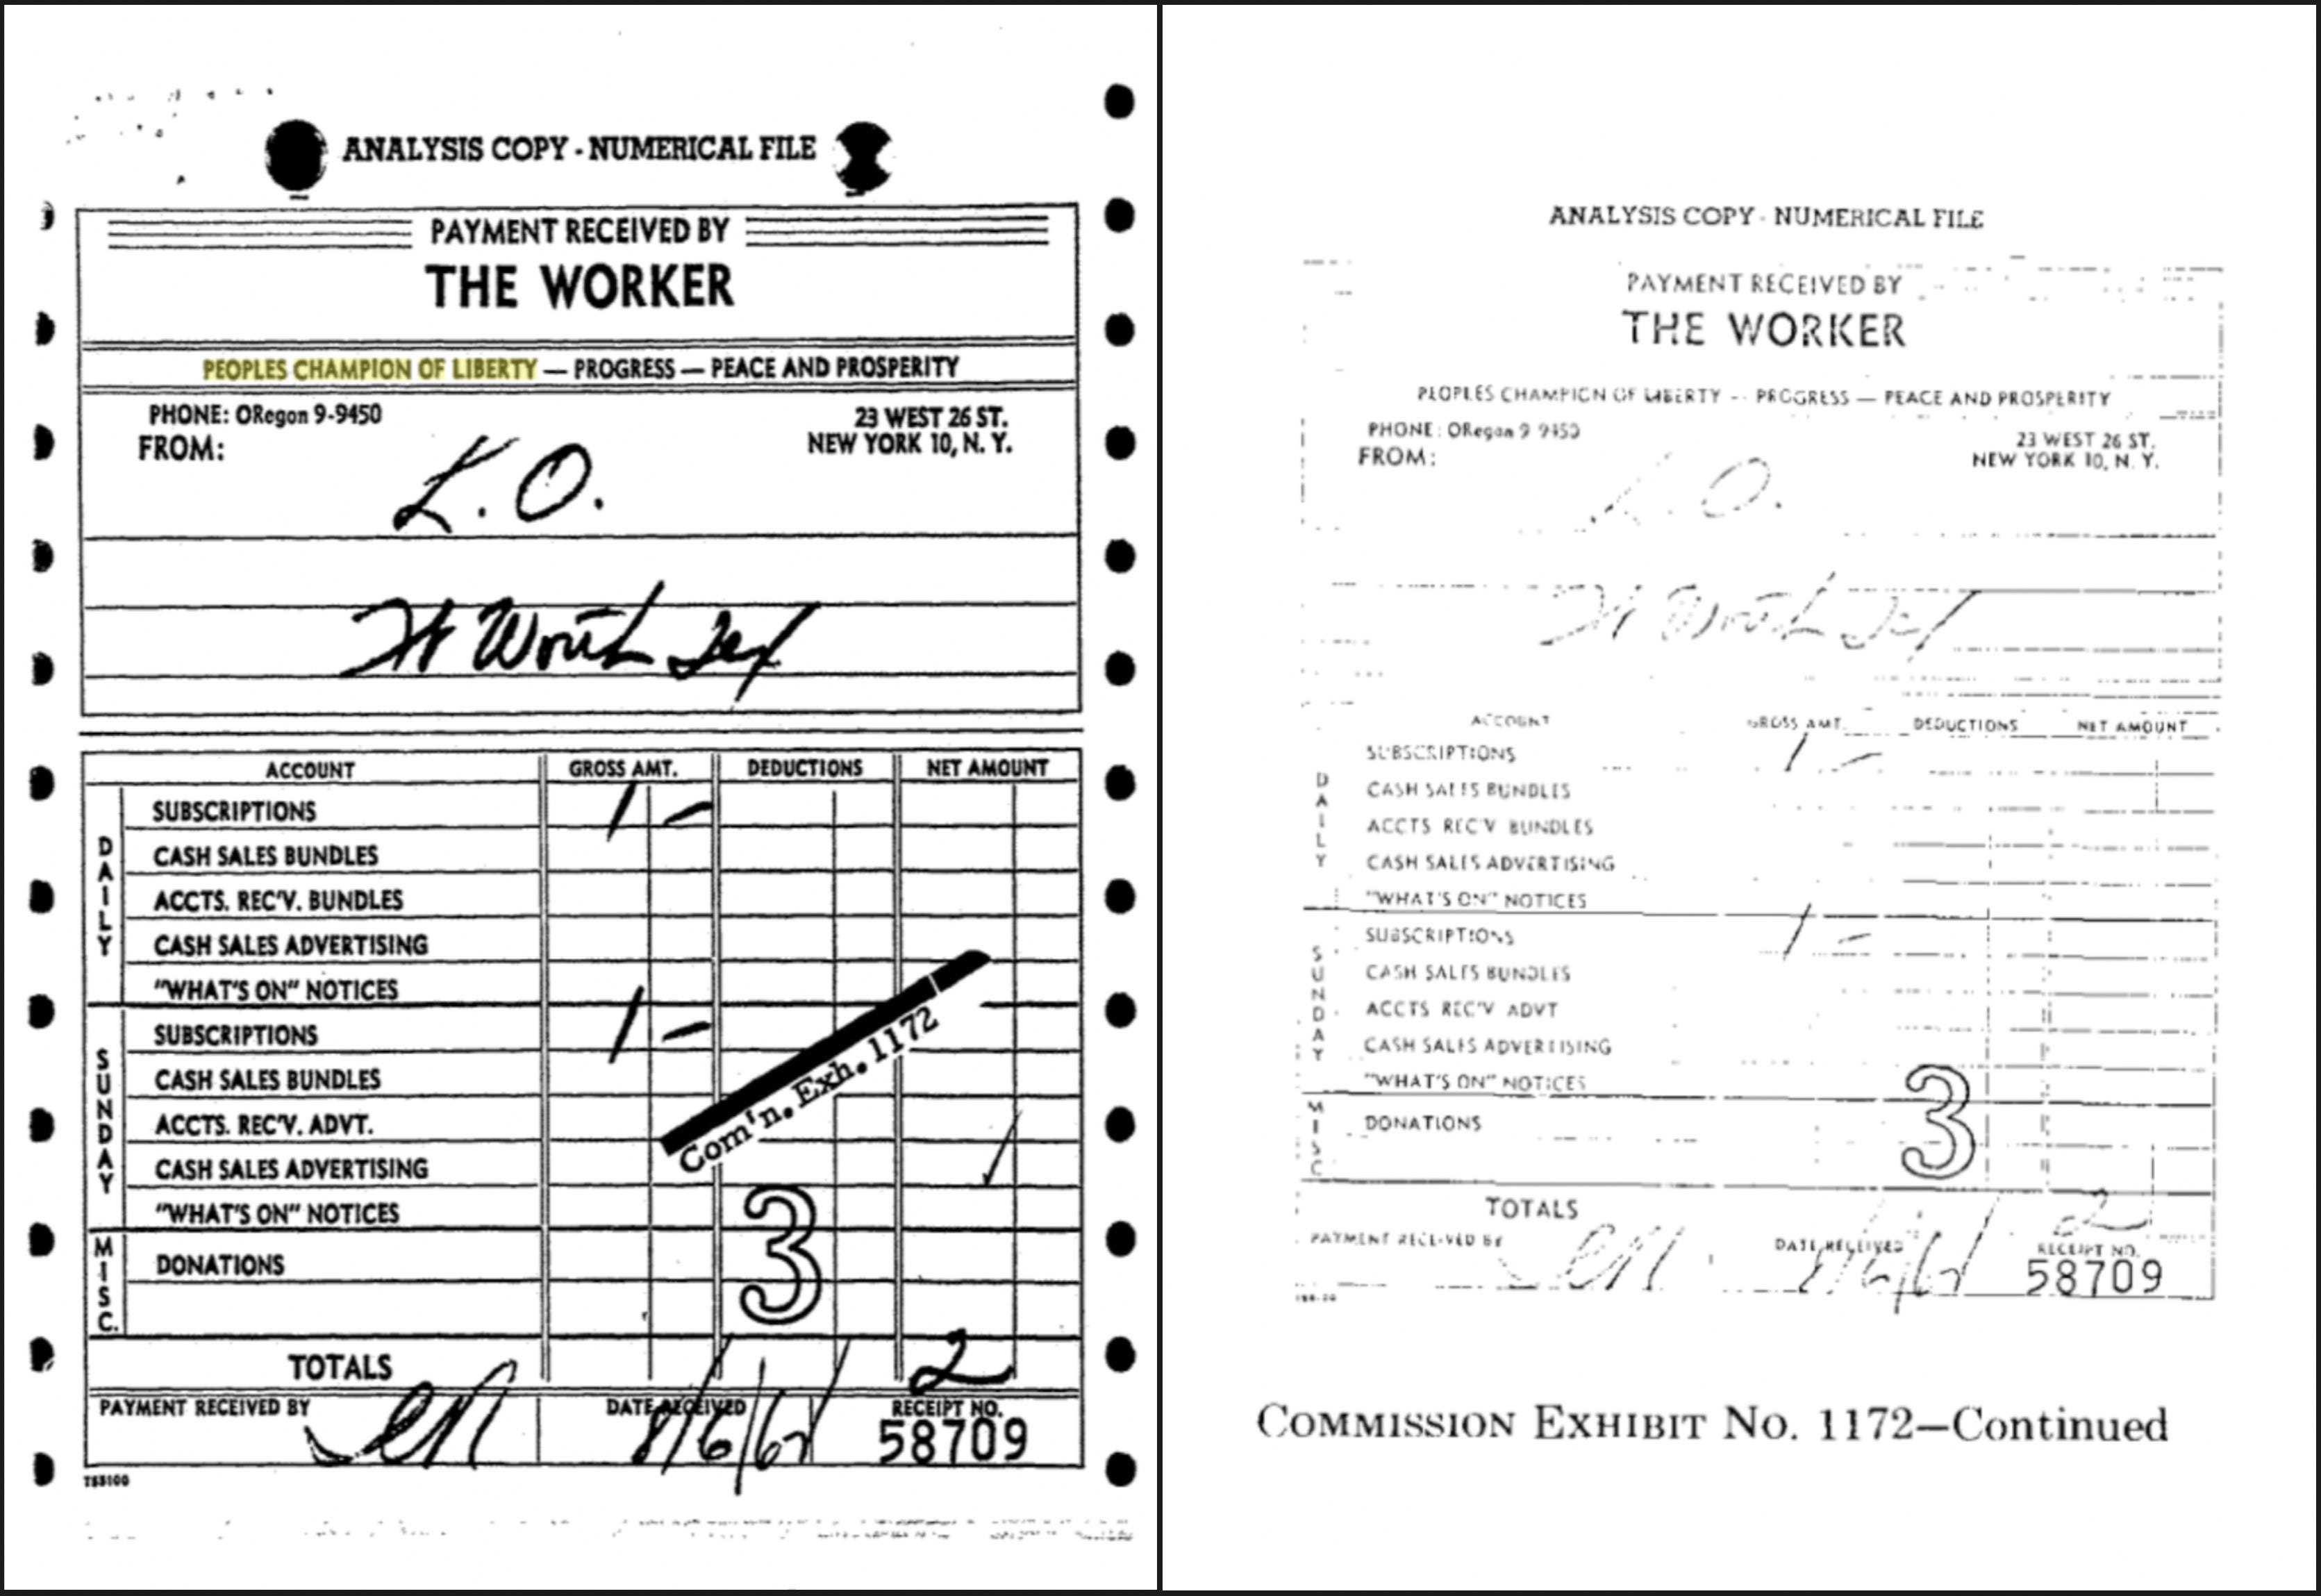 ANALYSIS COPY - NUMERICAL FILE
PAYMENT RECEIVED BY
THE WORKER
PEOPLES CHAMPION OF LIBERTY — PROGRESS — PEACE AND PROSPERITY
PHONE: ORegon 9-9450
23 WEST 26 ST.
FROM:
NEW YORK 10, N. Y.
L. O.
Ft Worth Tex
ACCOUNT GROSS AMT. DEDUCTIONS NET AMOUNT
DAILY
SUBSCRIPTIONS 1 -
CASH SALES BUNDLES
ACCTS. REC'V. BUNDLES
CASH SALES ADVERTISING
"WHAT'S ON" NOTICES
SUNDAY
SUBSCRIPTIONS 1 -
CASH SALES BUNDLES
ACCTS. REC'V. ADVT.
CASH SALES ADVERTISING
"WHAT'S ON" NOTICES
Com'n. Exh. 1172
MISC.
DONATIONS
3
TOTALS 2
PAYMENT RECEIVED BY DATE RECEIVED 8/6/62 RECEIPT NO.
58709
TSS100
ANALYSIS COPY - NUMERICAL FILE
PAYMENT RECEIVED BY
THE WORKER
PEOPLES CHAMPION OF LIBERTY -- PROGRESS — PEACE AND PROSPERITY
PHONE: ORegon 9 9450
23 WEST 26 ST.
FROM:
NEW YORK 10, N. Y.
L. O.
Ft Worth Tex
ACCOUNT GROSS AMT. DEDUCTIONS NET AMOUNT
DAILY
SUBSCRIPTIONS 1 -
CASH SALES BUNDLES
ACCTS REC'V BUNDLES
CASH SALES ADVERTISING
"WHAT'S ON" NOTICES
SUNDAY
SUBSCRIPTIONS 1 -
CASH SALES BUNDLES
ACCTS REC'V ADVT
CASH SALES ADVERTISING
"WHAT'S ON" NOTICES
MISC
DONATIONS
3
TOTALS 2
PAYMENT RECEIVED BY DATE RECEIVED 8/6/62 RECEIPT NO.
58709
COMMISSION EXHIBIT NO. 1172—Continued